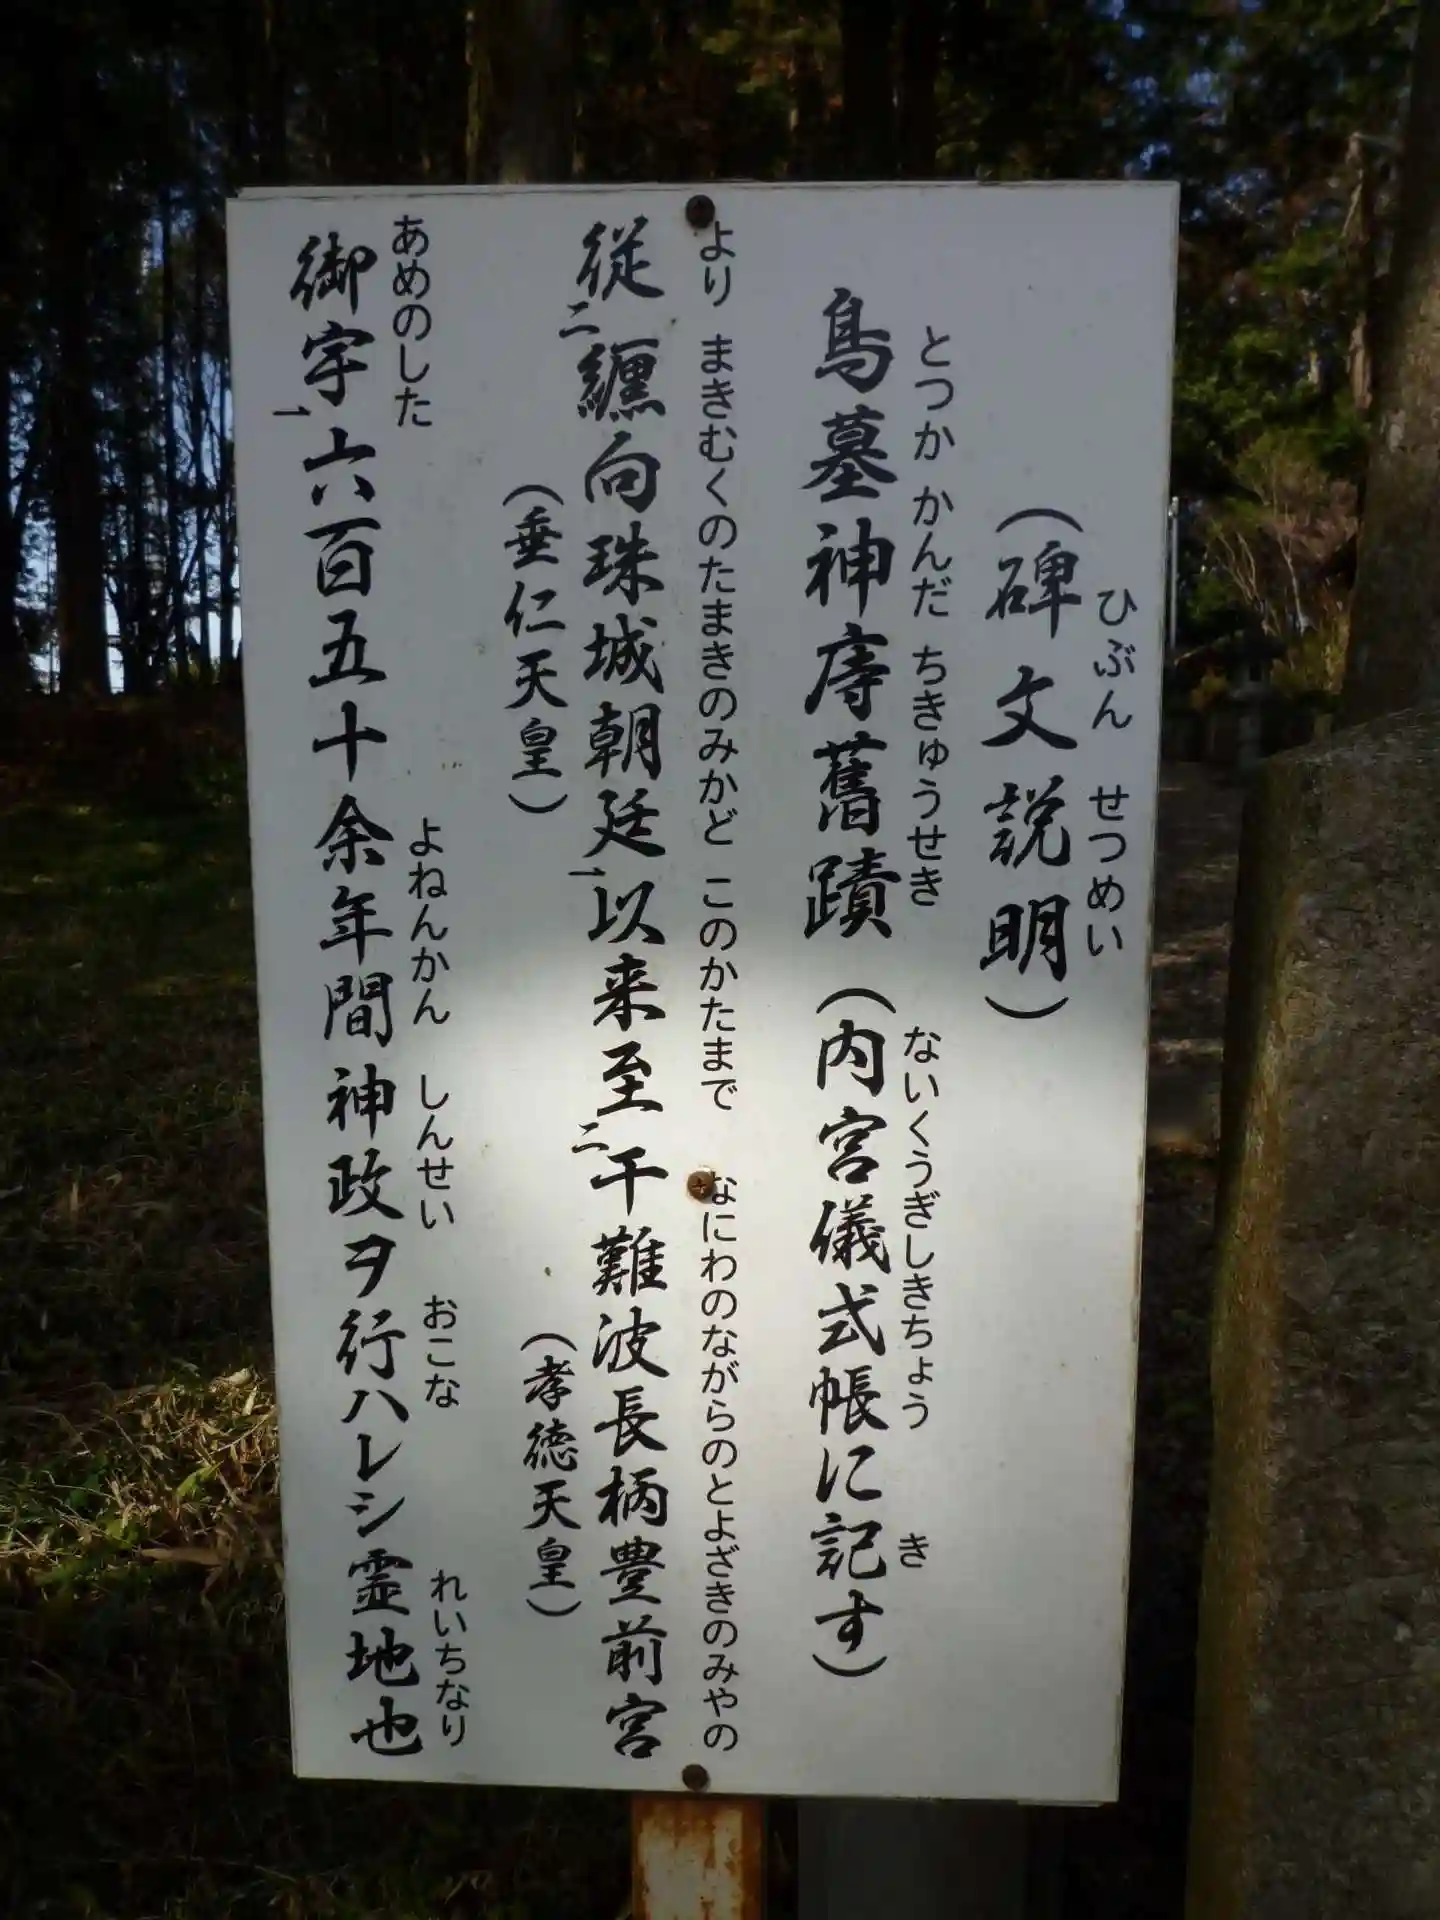 ひぶん せつめい
(碑文説明)
とつか かんだ ちきゅうせき ないくうぎしきちょう き
鳥墓神庤舊蹟(内宮儀式帳に記す)
より まきむくのたまきのみかど このかたまで なにわのながらのとよざきのみやの
従二纏向珠城朝廷一以来至二干難波長柄豊前宮
(垂仁天皇) (孝徳天皇)
あめのした よねんかん しんせい おこな れいちなり
御宇一六百五十余年間神政ヲ行ハレシ霊地也